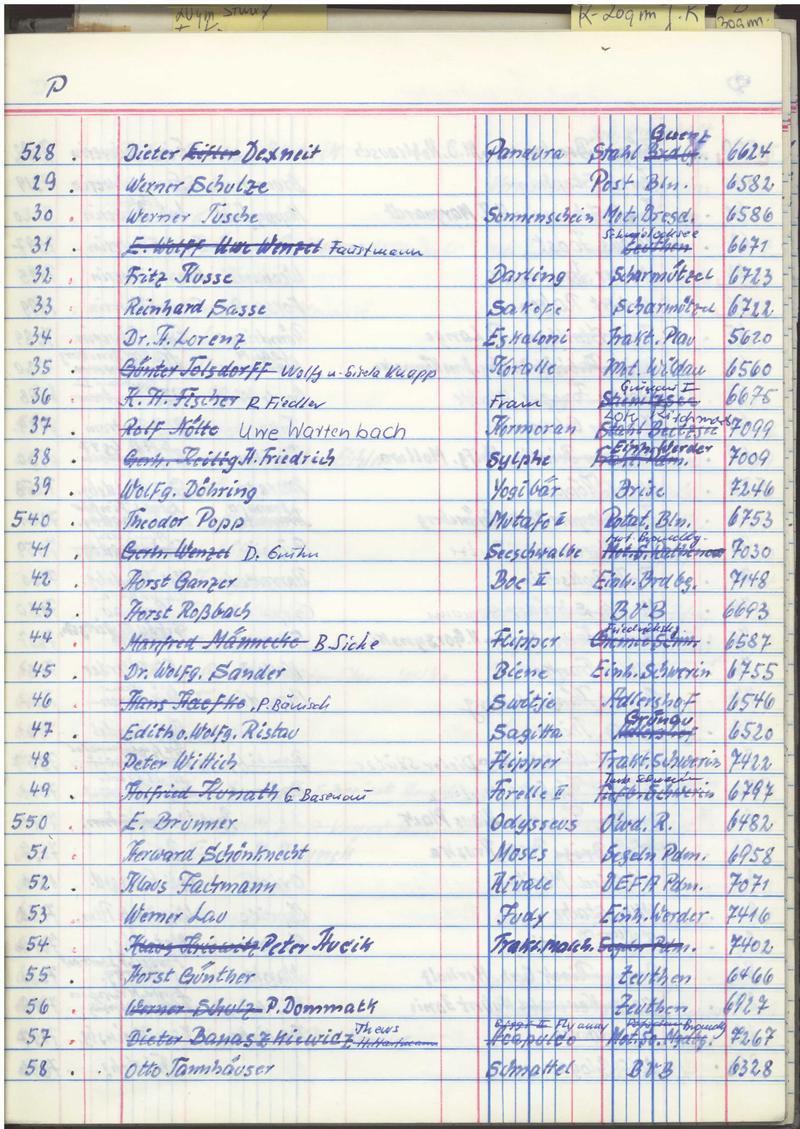 P
528 . Dieter Eifler Dexneit Pandura Stahl Brdbg. Quenz 6624
29 . Werner Schulze Post Bln. 6582
30 . Werner Tusche Sonnenschein Mot. Dresd. 6586
31 . E. Wolff Uwe Wenzel Faustmann Schmöckwitz Zeuthen 6671
32 . Fritz Kusse Darling Scharmützel 6723
33 . Reinhard Sasse Sakefe Scharmützel 6722
34 . Dr. H. Lorenz Eskaloni Trakt. Plau 5620
35 . Günter Tolsdorff Wolfg u. Gisela Knapp Koralle Mot. Wildau 6560
36 . K. H. Fischer R. Fiedler Fram Grünau I 6675
37 . Rolf Nölte Uwe Wartenbach Kormoran Stahl 7099
38 . Gerh. Heilig H. Friedrich Sylphe Einh. Werder 7009
39 . Wolfg. Döhring Yogibär Brise 7246
540 . Theodor Popp Mutafo II Rotat. Bln. 6753
41 . Gerh. Wenzel D. Seeschwalbe Mot. Brandbg. 7030
42 . Horst Ganzer Boe II Einh. Brdbg. 7148
43 . Horst Roßbach BVB 6693
44 . Manfred Männecke B. Siche Flipper Friedrichshg. 6587
45 . Dr. Wolfg. Sander Biene Einh. Schwerin 6755
46 . Hans Haefke, P. Bänisch Switje Adlershof 6546
47 . Edith u. Wolfg. Ristau Sagitta Grünau Adlershof 6520
48 . Peter Wittich Flipper Trakt. Schwerin 7422
49 . Holfried Kunath G. Basenau Forelle II Turb. Schwerin 6797
550 . E. Brunner Odysseus Owd. R. 6482
51 . Herward Schönknecht Moses Segeln Pdm. 6958
52 . Klaus Fachmann Rivale DEFA Pdm. 7071
53 . Werner Lau Judy Einh. Werder 7416
54 . Peter Hucik Segler Pdm. 7402
55 . Horst Günther Zeuthen 6466
56 . Werner Schulz P. Dommatk Zeuthen 6927
57 . Dieter Banaszkiewidz Thews H. Hartmann Acapulco Fly away 7267
58 . Otto Tannhäuser Schnattel BVB 6328